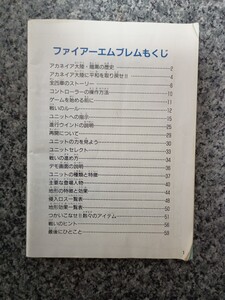 ファイアーエムブレムもくじ
アカネイア大陸・暗黒の歴史 2
アカネイア大陸に平和を取り戻せ!! 4
全四章のストーリー 6
コントローラーの操作方法 10
ゲームを始める前に 11
戦いのルール 12
ユニットへの指示 15
進行ウインドの説明 25
再開について 29
ユニットの力を見よう 30
ユニットセレクト 33
戦いの進め方 34
デモ画面の説明 36
ユニットの種類と特徴 37
主要な登場人物 43
地形の特徴と効果 46
挿入口スー覧表 48
地形効果一覧表 50
つかいこなせ!!数々のアイテム 51
戦いのヒント 58
最後にひとこと 69